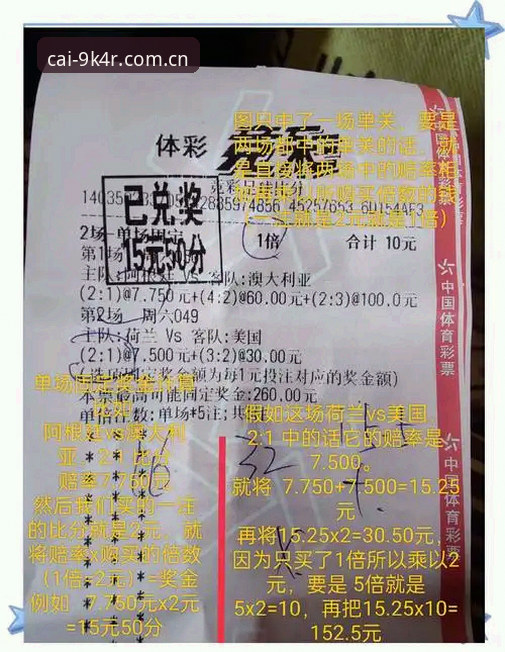 cai-9k4r.com.cn
图只中了一场单关，要是
两场都中的单关的话，就
是直接将两场中的赔率相
（一注就是2元就是1倍）
体彩
已兑奖
15元50分
2场-单场固定
1倍
合计 10元
主队:阿根廷 Vs 客队:澳大利亚
(2:1)@7.750元+(4:2)@60.00元+(2:3)@100.0元
第2场 周六049
主队:荷兰 Vs 客队:美国
(2:1)@7.500元+(3:2)@30.00元
(选项固定奖金额为每1元投注对应的奖金额)
本票最高可能固定奖金:260.00元
单倍注数:单场*5注;共
中国体育彩票
中国体育彩票
单场固定奖金计算
阿根廷vs澳大利
亚，2:1 比分
赔率7.750元
然后我们买的一注
的比分就是2元，就
将赔率x购买的倍数
（1倍=2元）=奖金
例如，7.750元x2元
=15元50分
32
假如这场荷兰vs美国，
2:1 中的话它的赔率是
7.500。
就将 7.750+7.500=15.25
元
再将15.25x2=30.50元，
因为只买了1倍所以乘以2
元，要是 5倍就是
5x2=10，再把15.25x10=
152.5元